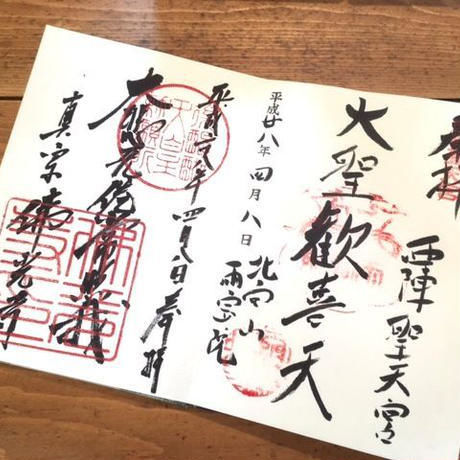 奉拝
西陣聖天宮
大聖歡喜天
北向山
雨宝院
平成廿八年 四月八日
平成廿八年四月八日奉拝
大悲無倦常照我
真宗佛光寺